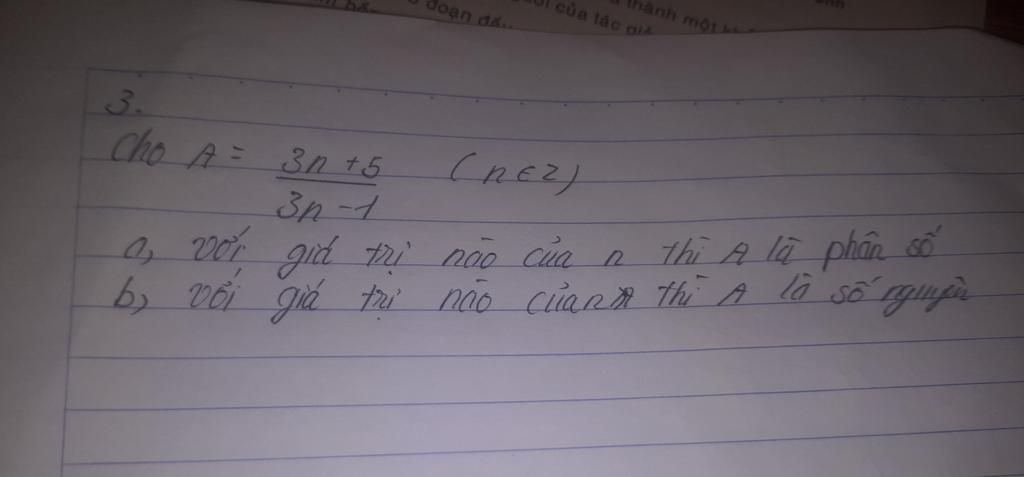 thành một
đoạn
của tác giả
3.
Cho A = \frac{3n+5}{3n-1} (n ∈ Z)
a, với giá trị nào của n thì A là phân số
b, với giá trị nào của n thì A là số nguyên